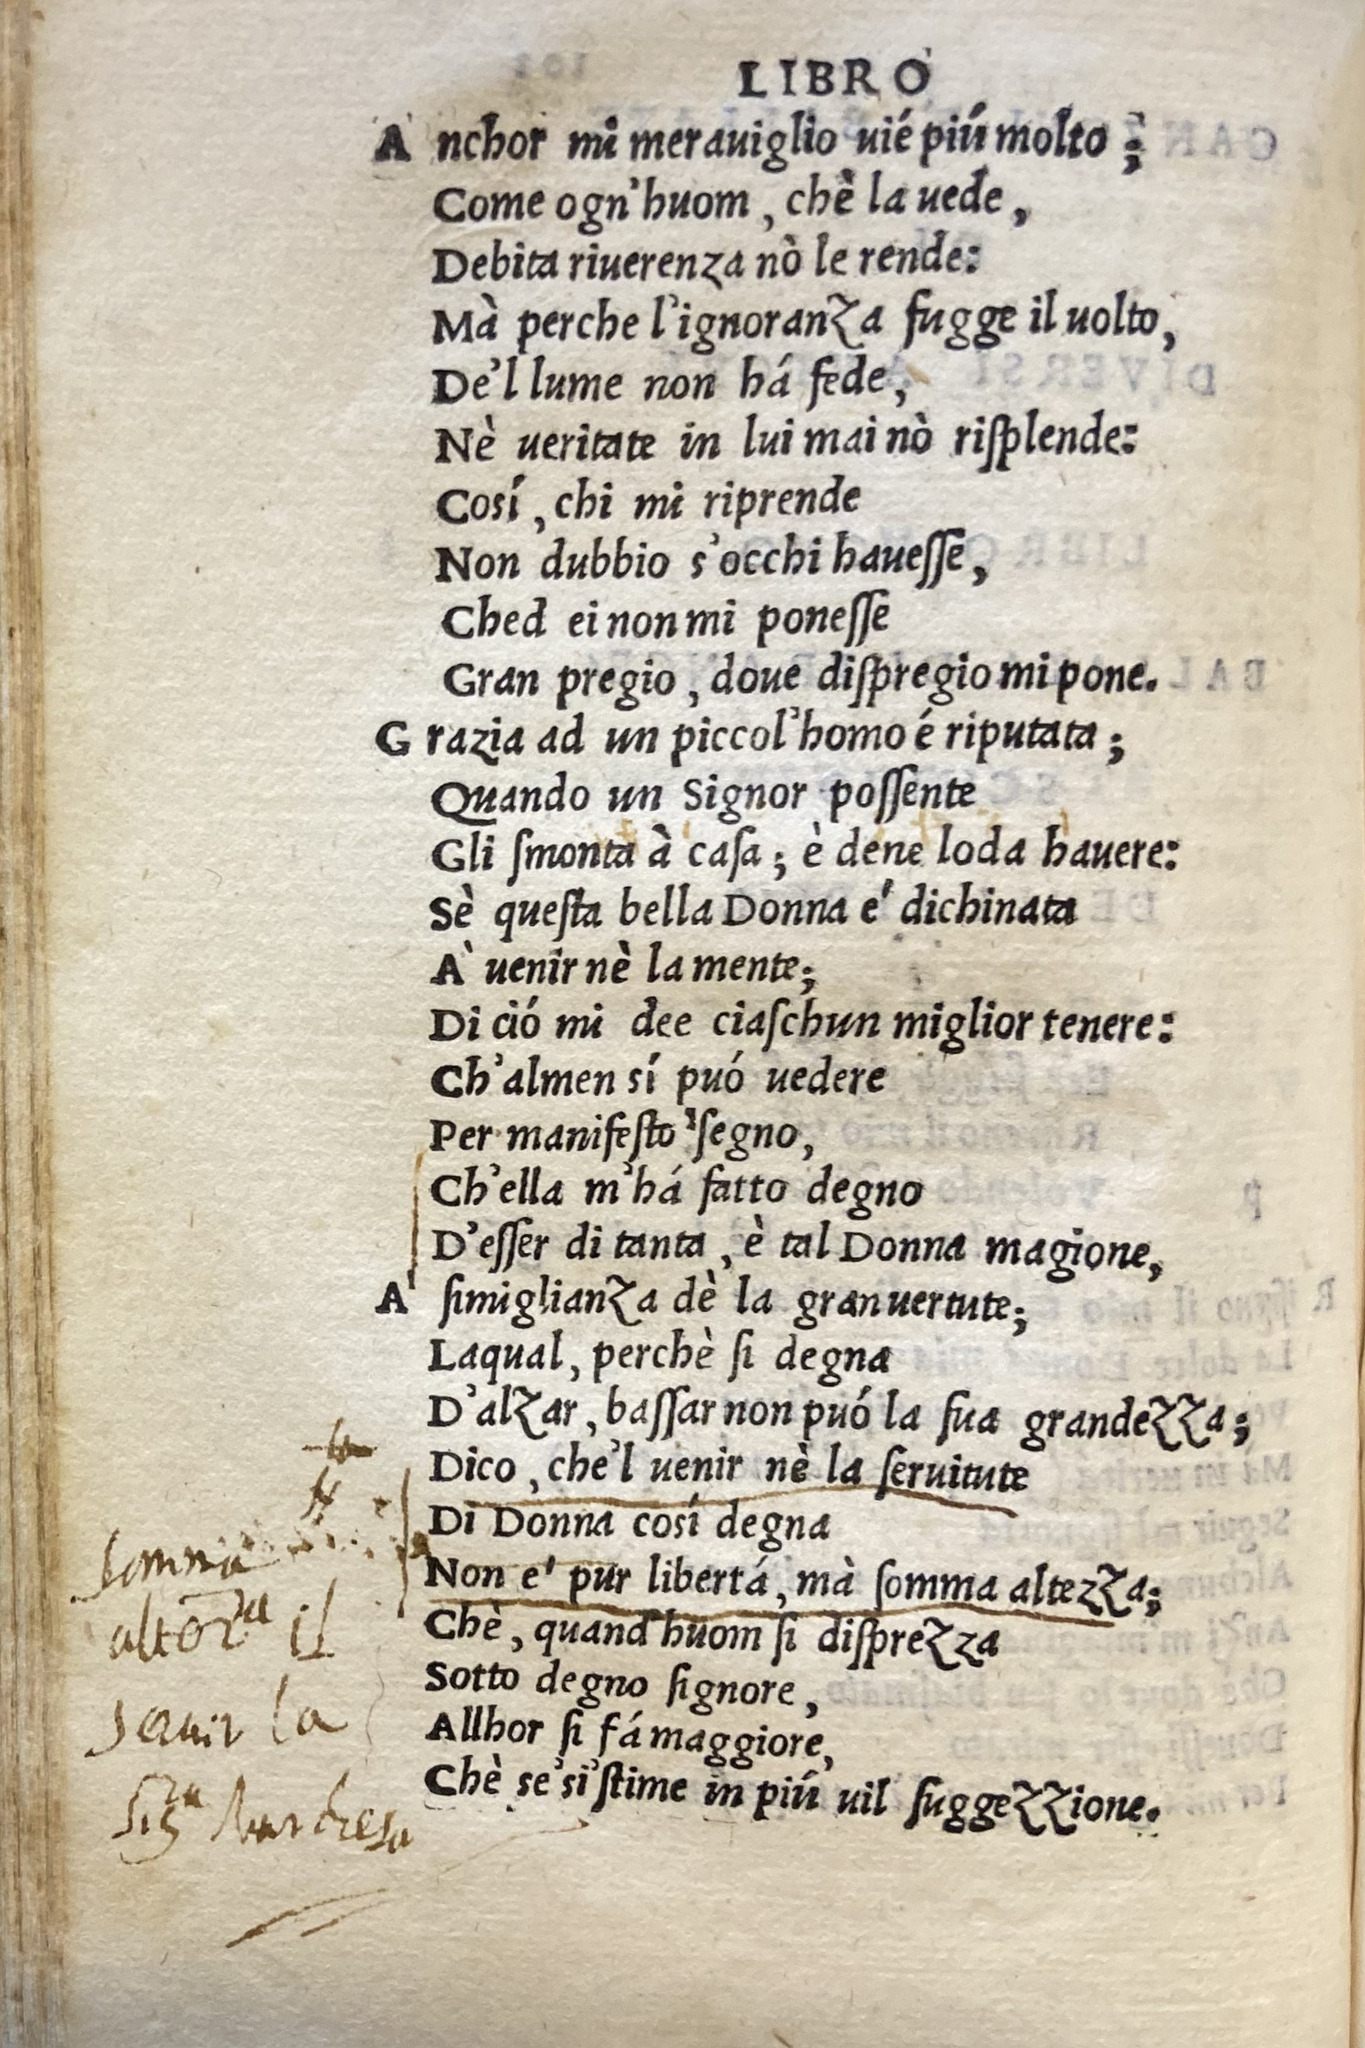 LIBRO
A nchor mi merauiglio uié piú molto ;
Come ogn'huom , chè la uede ,
Debita riuerenza nò le rende:
Mà perche l'ignoranza fugge il uolto,
De'l lume non há fede ,
Nè ueritate in lui mai nò riſplende:
Cosí , chi mi riprende
Non dubbio s'occhi haueſſe ,
Ched ei non mi poneſſe
Gran pregio , doue diſpregio mi pone.
G razia ad un piccol'homo é riputata ;
Quando un Signor poſſente
Gli ſmonta à caſa ; è dene loda hauere:
Sè queſta bella Donna e' dichinata
A' uenir nè la mente;
Di ció mi dee ciaſchun miglior tenere:
Ch'almen sí puó uedere
Per manifeſto 'ſegno,
Ch'ella m'há fatto degno
D'eſſer di tanta , è tal Donna magione,
A' ſimiglianza dè la gran uertute;
Laqual , perchè ſi degna
D'alzar , baſſar non puó la ſua grandezza;
Dico , che'l uenir nè la ſeruitute
Di Donna cosí degna
Non e' pur libertá , mà ſomma altezza;
Chè , quand'huom ſi diſprezza
Sotto degno ſignore ,
Allhor ſi fá maggiore,
Chè se'si'ſtime in piú uil ſuggezzione.
somma
il
seruir la
Sig.ra Marchesa